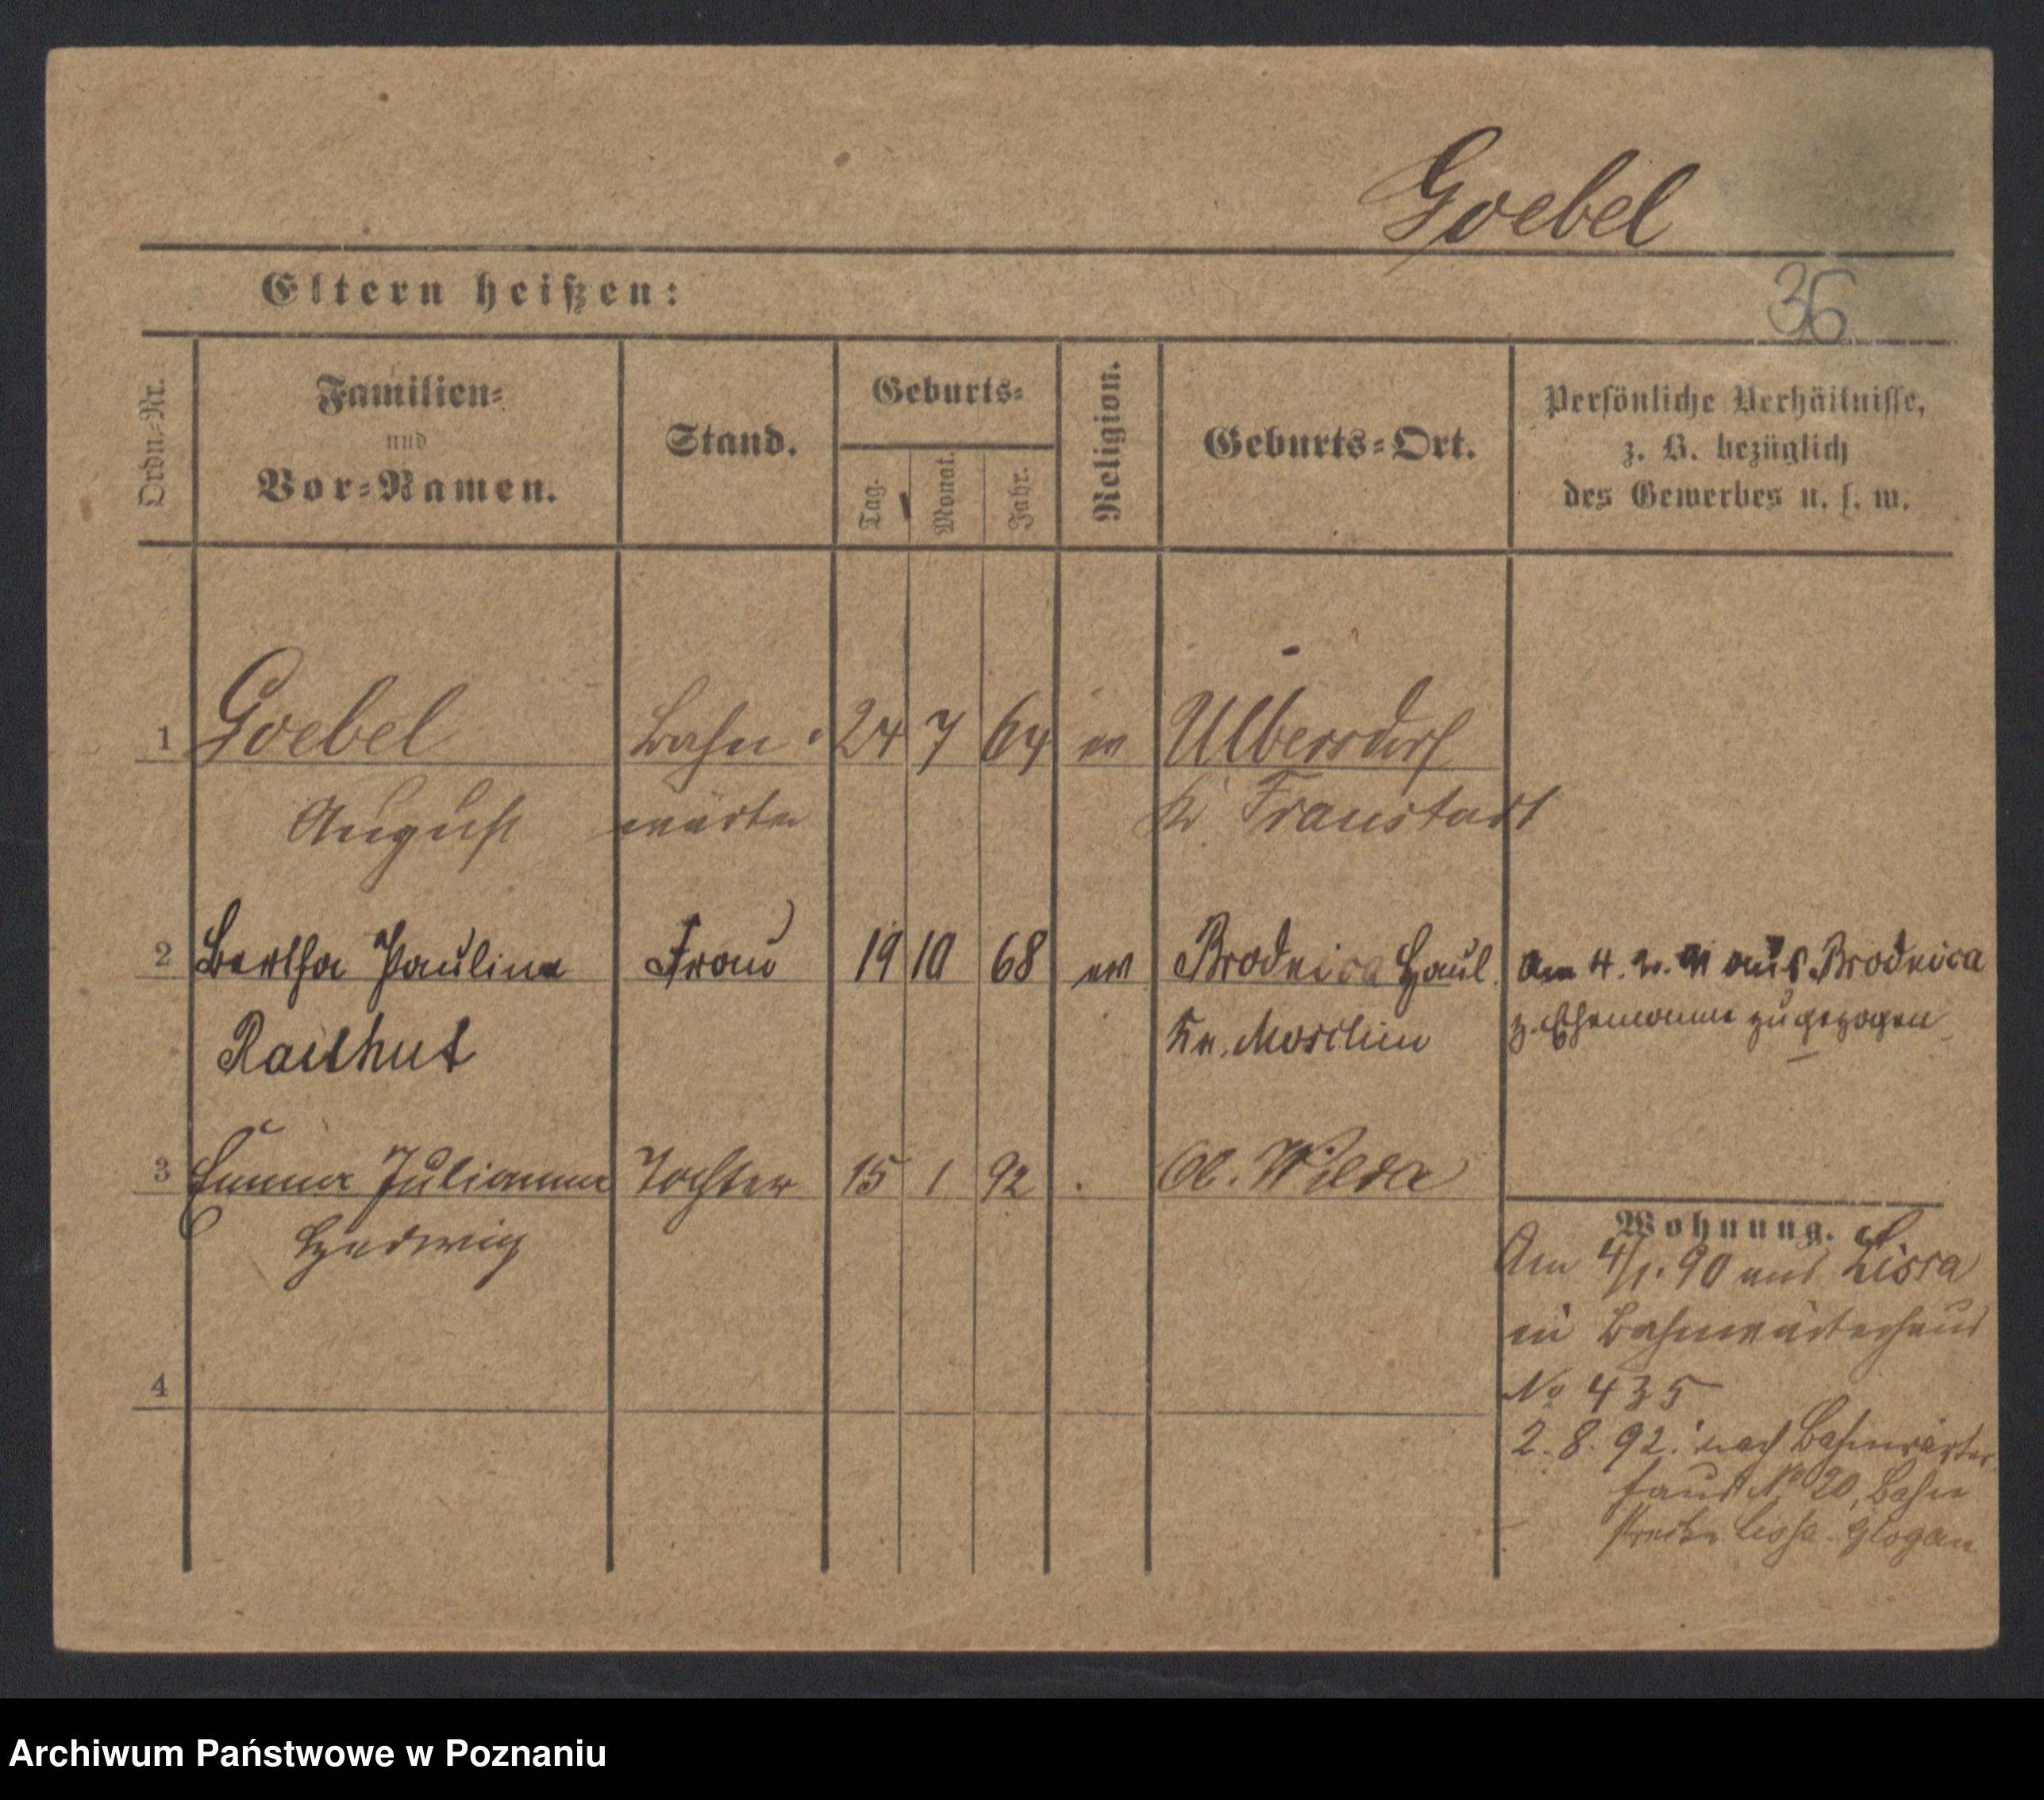 Goebel
Eltern heißen:
36
Ordn.-Nr.
Familien-
und
Vor-Namen.
Stand.
Geburts-
Tag.
Monat.
Jahr.
Religion.
Geburts-Ort.
Persönliche Verhältnisse,
z. B. bezüglich
des Gewerbes u. s. w.
1 Goebel Bahn- 24 7 64 ev Ulbersdorf
August wärter Kr Fraustadt
2 Bertha Pauline Frau 19 10 68 ev Brodnica Haul. Am 4. 2. 91 aus Brodnica
Raithut Kr. Moschin z. Ehemanne zugezogen
3 Emma Julianna Tochter 15 1 92 Ob. Wilda
Hedwig
Wohnung.
Am 4/1. 90 aus Lissa
in Bahnwärterhaus
No 435
4
2. 8. 92. nach Bahnwärter
haus No 20, Bahn
strecke Lissa-Glogau
Archiwum Państwowe w Poznaniu